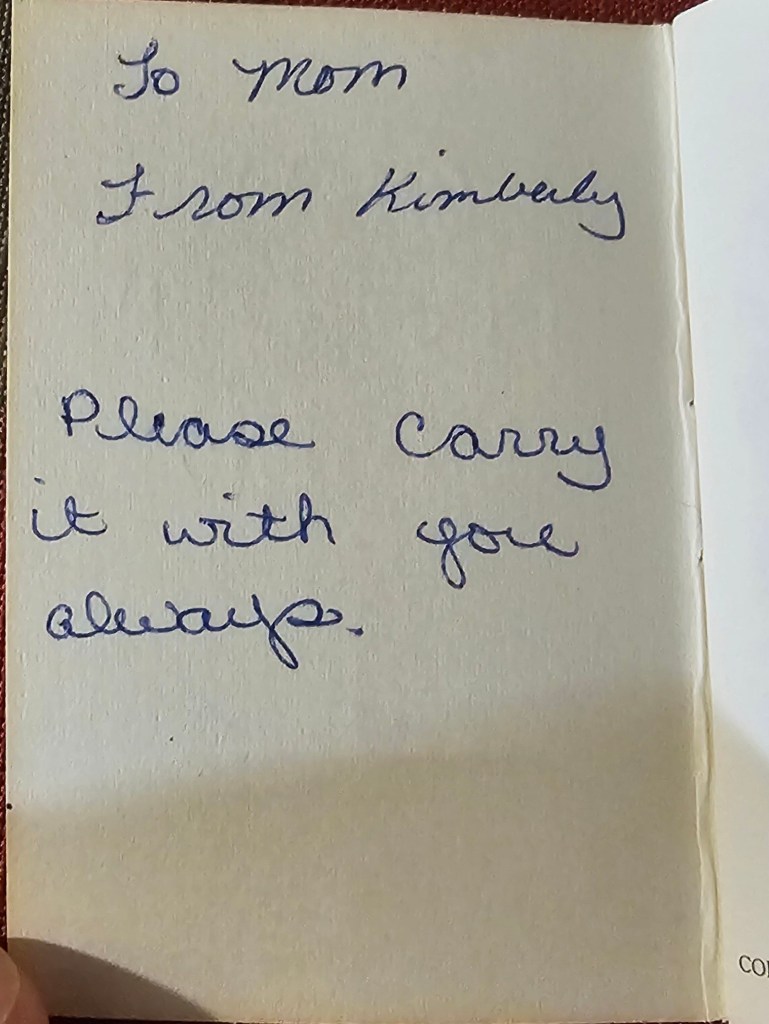 To Mom
From Kimberly
Please carry
it with you
always.